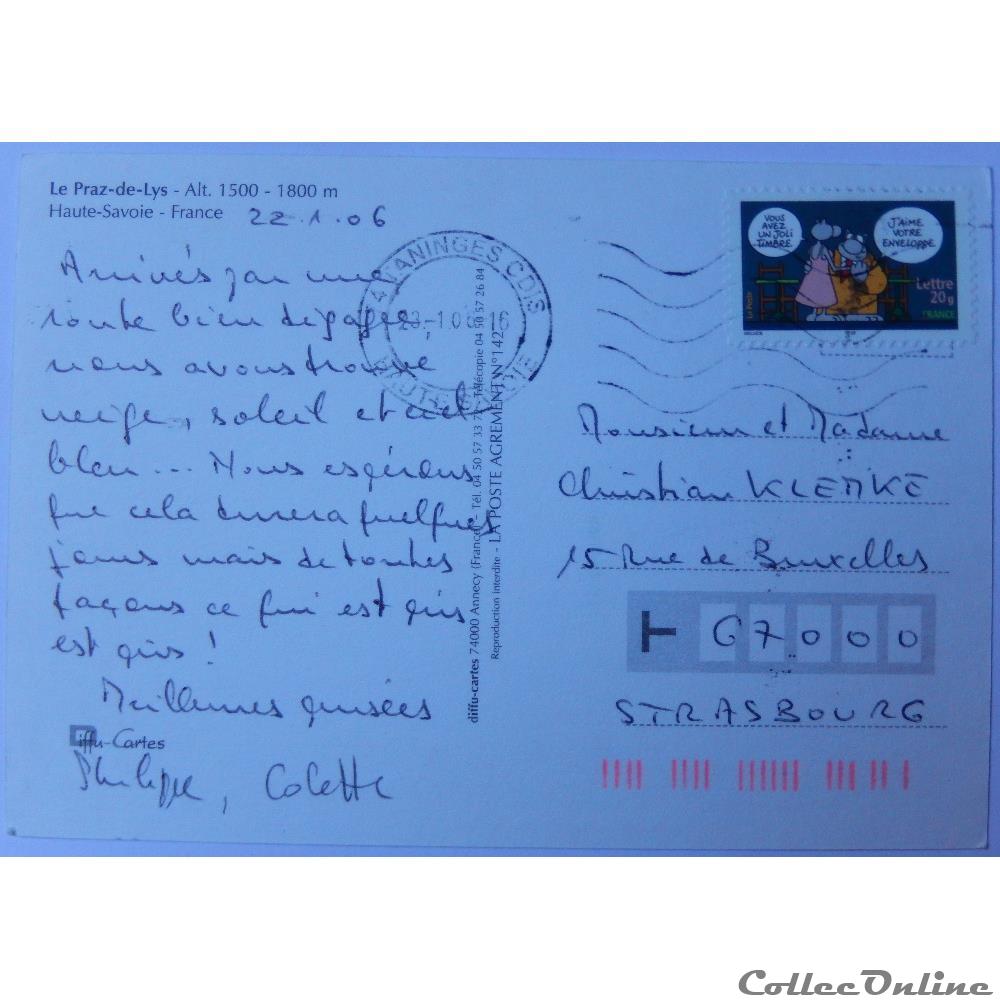 Le Praz-de-Lys - Alt. 1500 - 1800 m
Haute-Savoie - France 22.1.06
Arrivés par une
route bien dégagée,
nous avons trouvé
neige, soleil et ciel
bleu... Nous espérons
que cela durera quelques
jours mais de toutes
façons ce qui est pris
est pris !
Meilleures pensées
Philippe, Colette
Diffu-Cartes
TANINGES CDIS
23-1.06 16
HAUTE SAVOIE
diffu-cartes 74000 Annecy (France) - Tél. 04 50 57 33 7 - Télécopie 04 50 57 26 84
Reproduction interdite - LA POSTE AGREMENT N°142
VOUS
AVEZ
UN JOLI
TIMBRE.
J'AIME
VOTRE
ENVELOPPE.
La Poste
Lettre
20g
FRANCE
Monsieur et Madame
Christian KLEMKE
15 Rue de Bruxelles
67000
STRASBOURG
CollecOnline